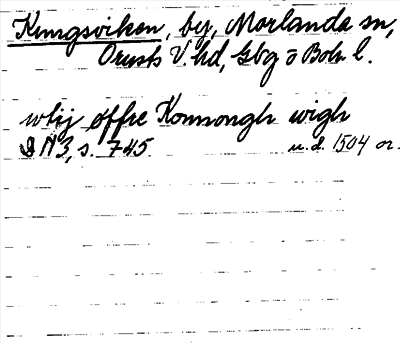 Kungsviken, by, Morlanda sn,
Orusts V. hd, Gbg o Boh l.
øffre Konnongh wigh
DN 3, s. 745 u.d. 1504 or.